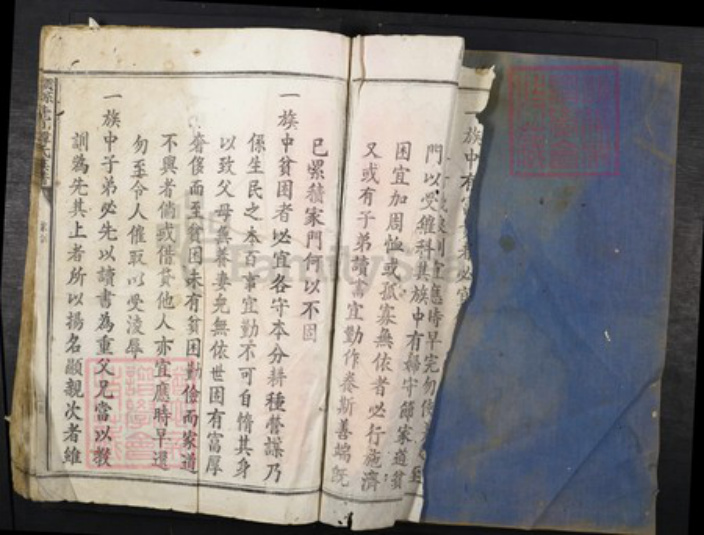 一族中有
門以受維科其族中有婦守節家道貧
困宜加周恤或孤寡無依者必行施濟
又或有子弟讀書宜勤作養斯善端旣
已累積家門何以不固
一族中貧困者必宜各守本分耕種營謀乃
係生民之本百事宜勤不可自惰其身
以致父母無養妻兒無依世固有富厚
奢侈而至貧困未有貧困勤儉而家道
不興者倘或借貸他人亦宜應時早還
勿至令人催取以受淩辱
一族中子弟必先以讀書為重父兄當以教
訓為先其上者所以揚名顯親次者維